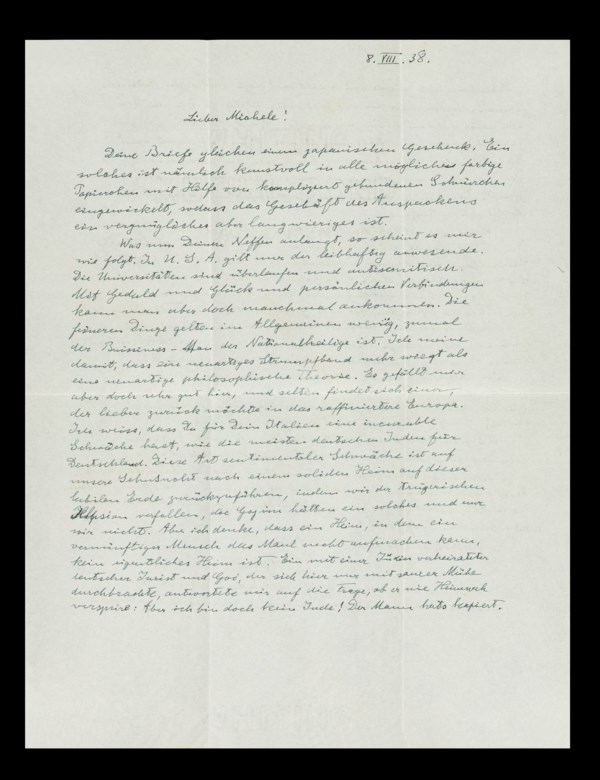 8. VIII. 38.
Lieber Michele!
Deine Briefe gleichen einem japanischen Geschenk. Ein
solches ist nämlich kunstvoll in alle möglichen farbige
Papierchen mit Hilfe von kompliziert gebundenen Schnürchen
eingewickelt, sodass das Geschäft des Auspackens
ein vergnügliches aber langwieriges ist.
Was nun Deinen Neffen anlangt, so scheint es mir
wie folgt. In U. S. A. gilt nur der leibhaftig anwesende.
Die Universitäten sind überlaufen und antisemitisch.
Mit Geduld und Glück und persönlichen Verbindungen
kann man aber doch manchmal ankommen. Die
feineren Dinge gelten im Allgemeinen wenig, zumal
der Buissness-Man der Nationalheilige ist. Ich meine
damit, dass ein neuartiges Strumpfband mehr wiegt als
eine neuartige philosophische Theorie. Es gefällt mir
aber doch sehr gut hier, und selten findet sich einer,
der lieber zurück möchte in das raffiniertere Europa.
Ich weiss, dass Du für Dein Italien eine incurable
Schwäche hast, wie die meisten deutschen Juden für
Deutschland. Diese Art sentimentaler Schwäche ist auf
unsere Sehnsucht nach einem soliden Heim auf dieser
labilen Erde zurückzuführen, indem wir der trügerischen
Illusion verfallen, die Gojim hätten ein solches und nur
wir nicht. Aber ich denke, dass ein Heim, in dem ein
vernünftiger Mensch das Maul nicht aufmachen kann,
kein eigentliches Heim ist. Ein mit einer Jüdin verheirateter
deutscher Jurist und Goi, der sich hier nur mit saurer Mühe
durchbrachte, antwortete mir auf die Frage, ob er nie Heimweh
verspüre: Aber ich bin doch kein Jude! Der Mann hats kapiert.